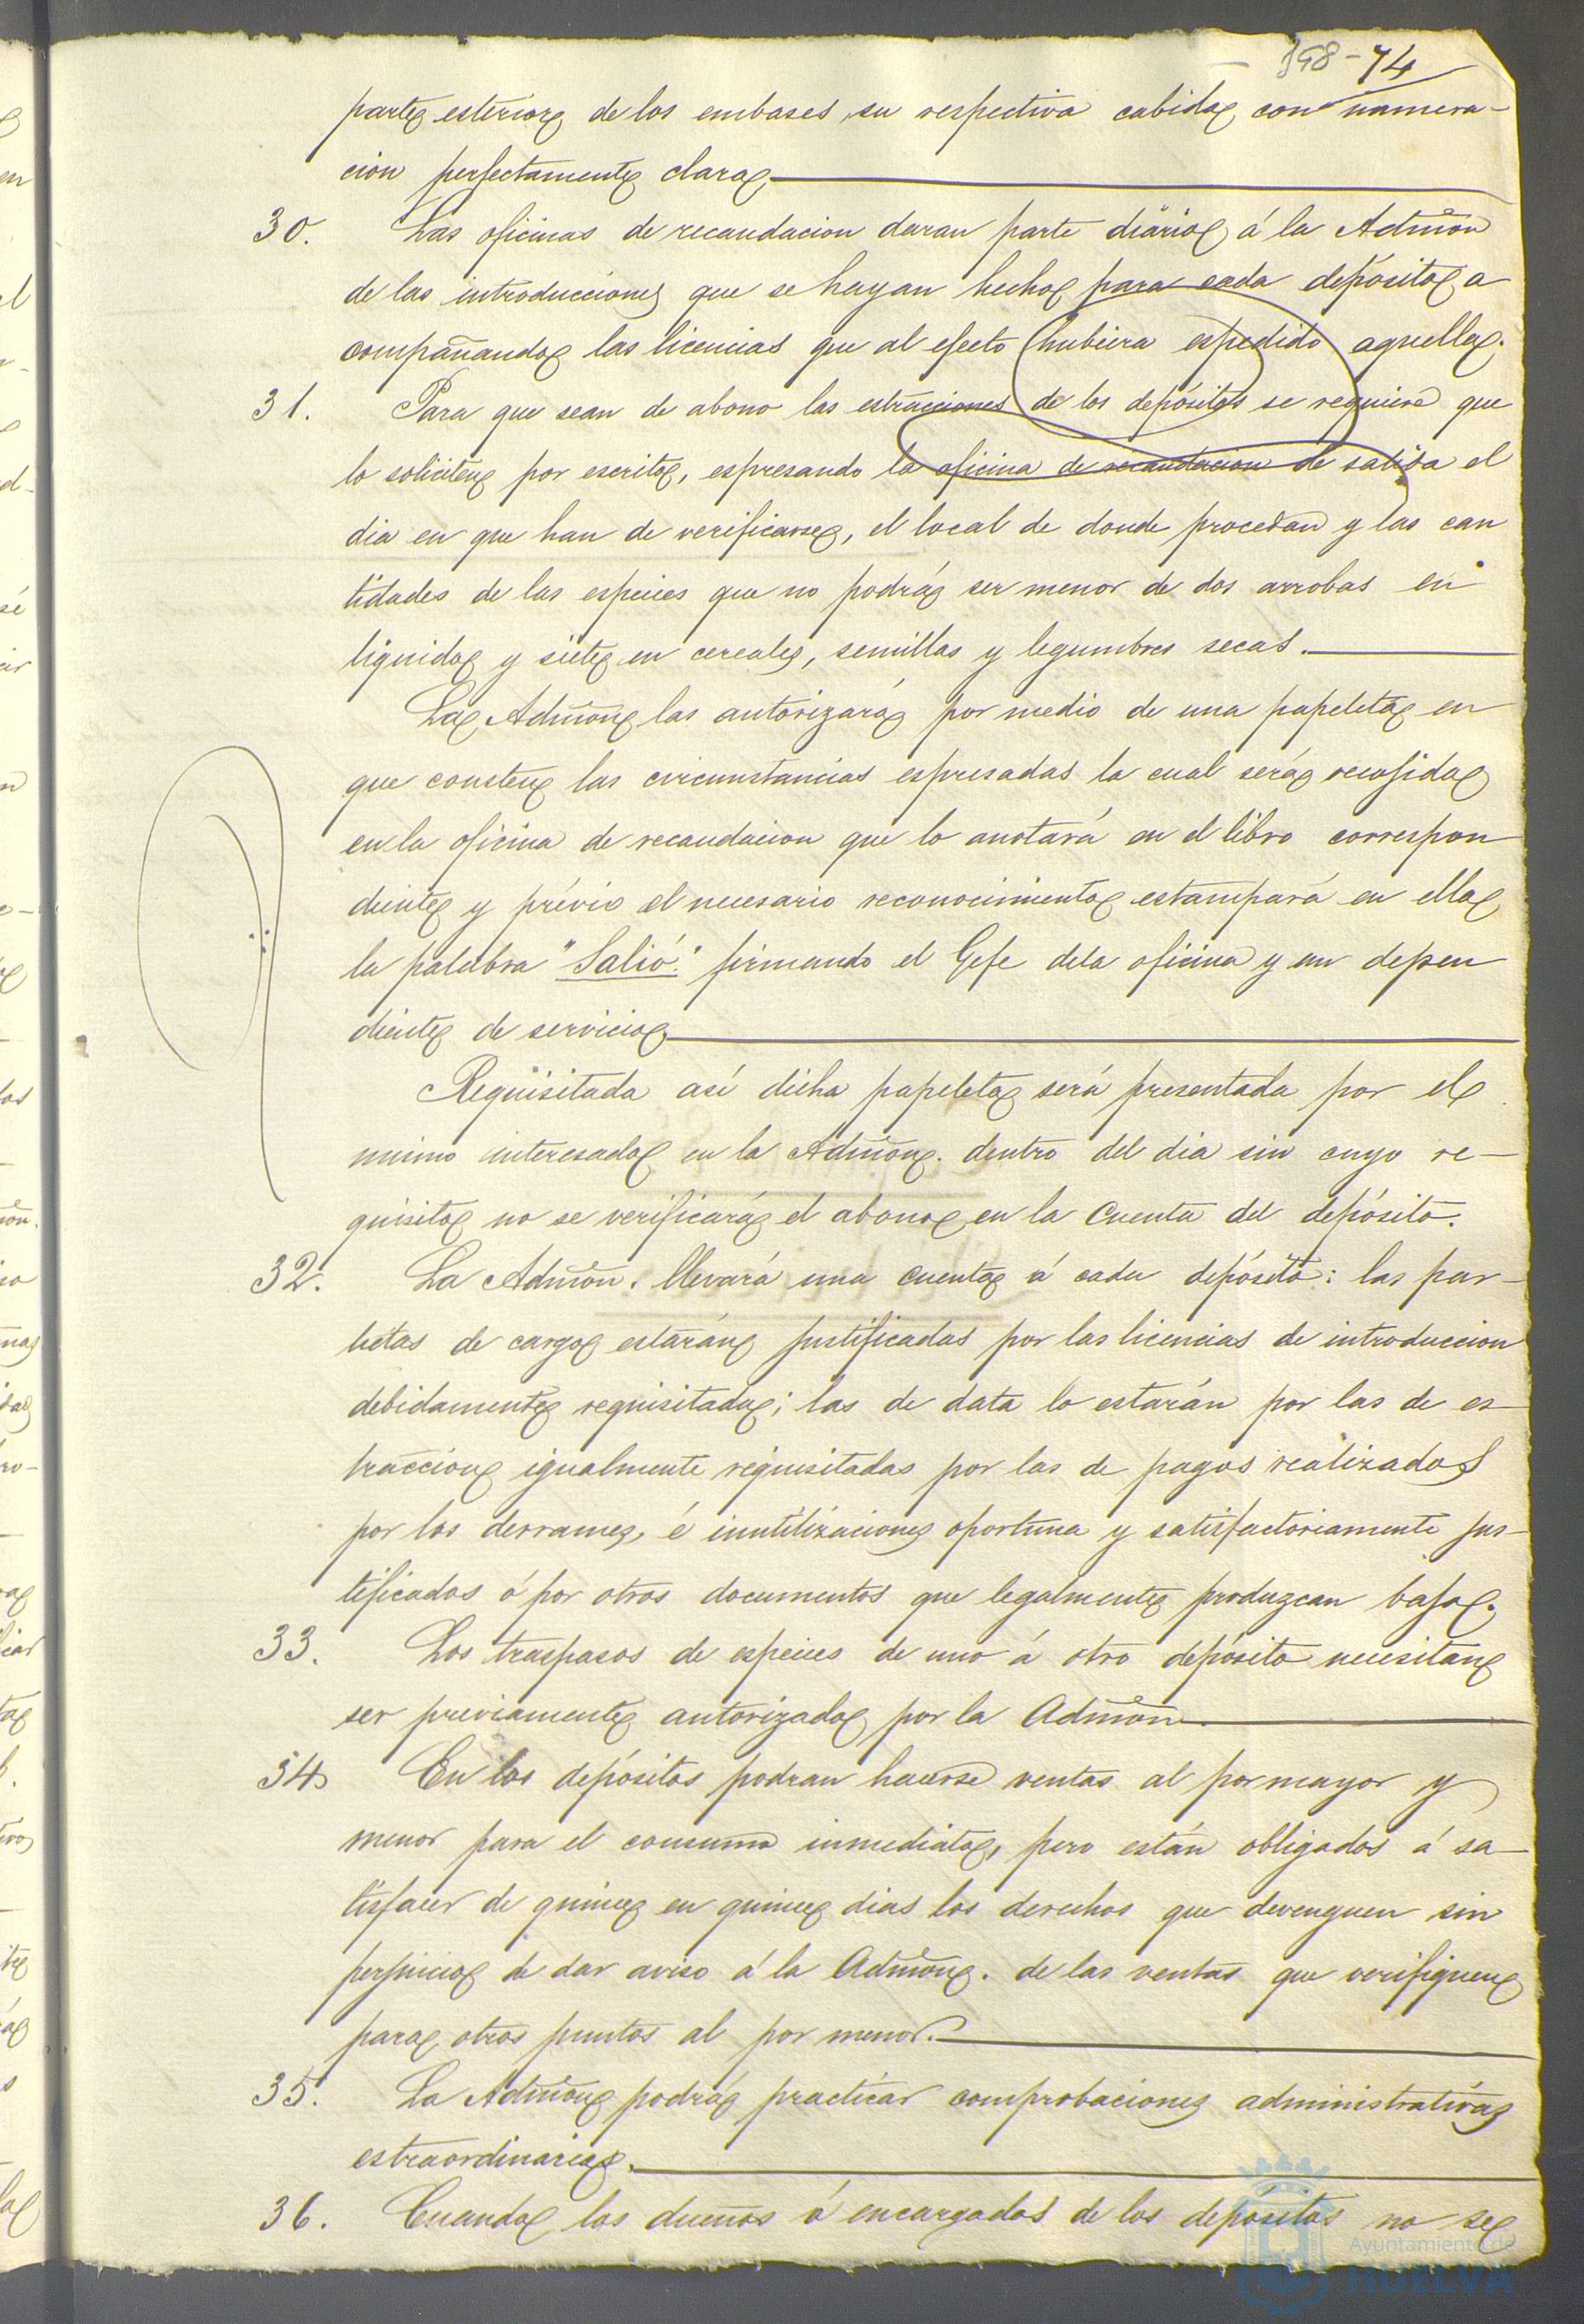 198-74
parte esterior de los embases, su respectiva cabida con numera-
cion perfectamente clara
30. Las oficinas de recaudacion daran parte diario á la Admon
de las introducciones que se hayan hecho para cada depósito a
compañando las licencias que al efecto hubiera espedido aquella.
31. Para que sean de abono las estracciones de los depósitos se requiere que
lo soliciten por escrito, espresando la oficina de recaudacion de salida el
dia en que han de verificarse, el local de donde procedan y las can
tidades de las especies que no podrá ser menor de dos arrobas en
liquido y siete en cereales, semillas y legumbres secas.
La Admon las autorizará por medio de una papeleta en
que consten las circunstancias espresadas la cual será recojida
en la oficina de recaudacion que lo anotará en el libro correspon
diente y prévio el necesario reconocimiento estampará en ella
la palabra "Salió." firmando el Gefe dela oficina y un depen
diente de servicio
Requisitada así dicha papeleta será presentada por el
mismo interesado en la Admon. dentro del dia sin cuyo re-
quisito no se verificará el abono en la Cuenta del depósito.
32. La Admon. llevará una cuenta á cada depósito: las par-
tetas de cargo estarán justificadas por las licencias de introduccion
debidamente requisitada; las de data lo estarán por las de es-
traccion igualmente requisitadas por las de pagos realizados
por los derrames, é inutilizaciones oportuna y satisfactoriamente jus-
tificados ó por otros documentos que legalmente produzcan baja.
33. Los traspasos de especies de uno á otro depósito necesitan
ser previamente autorizado por la Admon.
34 En los depósitos podran hacerse ventas al por mayor y
menor para el consumo inmediato, pero están obligados á sa-
tisfacer de quince en quince dias los derechos que devenguen sin
perjuicio de dar aviso á la Admon. de las ventas que verifiquen
para otros puntos al por menor.
35. La Admon podrá practicar comprobaciones administrativas
estraordinarias.
36. Cuando los dueños ó encargados de los depósitos no se
Ayuntamiento de
HUELVA